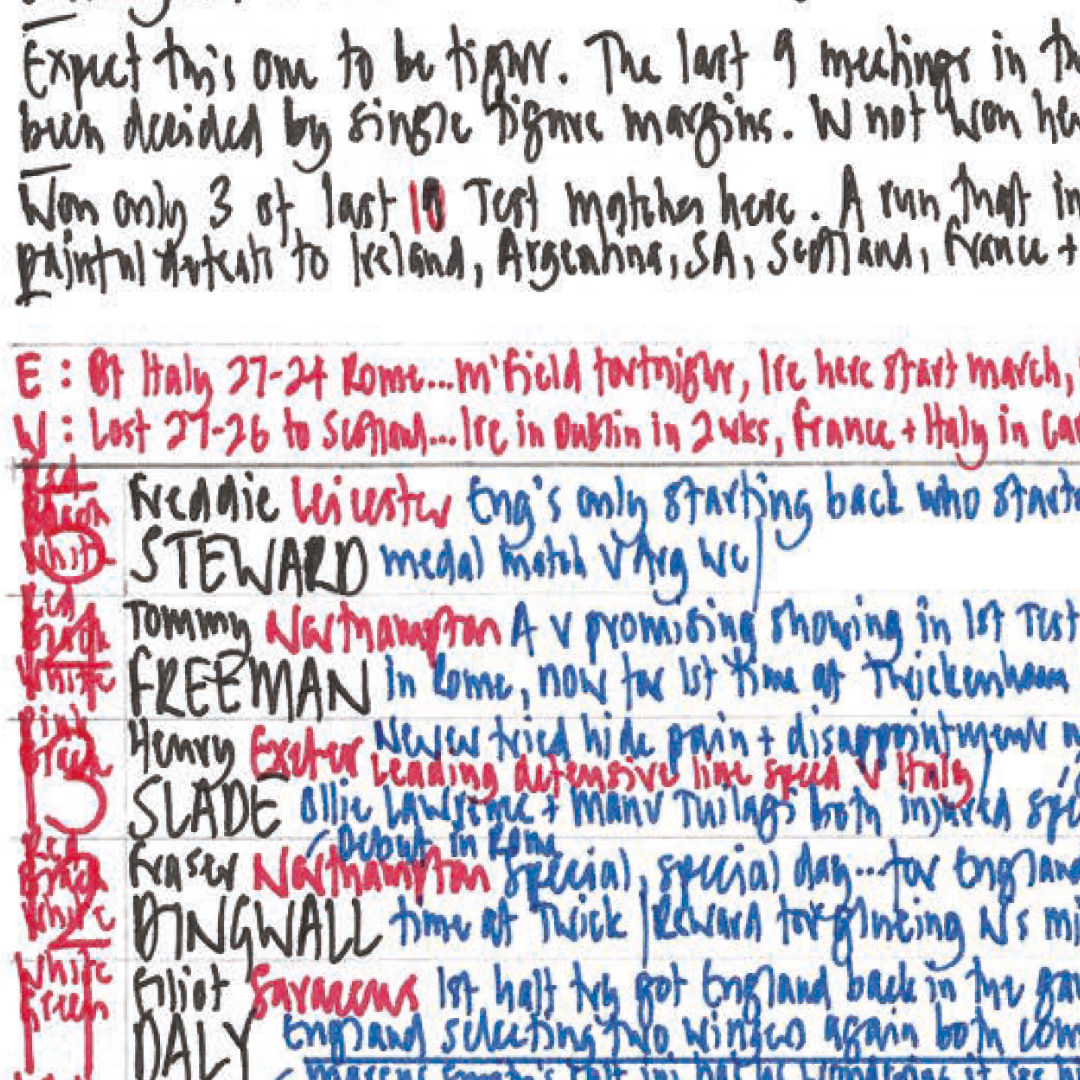 Expect this one to be tight. The last 9 meetings in
been decided by single figure margins. W not won
Won only 3 of last 10 Test matches here. A run that in
painful defeats to Ireland, Argentina, SA, Scotland, France +
E : Bt Italy 27-24 Rome...m'field fortnight, Ire here start march,
W : Lost 27-26 to Scotland...Ire in Dublin in 2 wks, France + Italy in
Red
Bacon
White
15
Freddie Leicester Eng's only starting back who
STEWARD medal match v Arg WC
Red
White
14
Tommy Northampton A v promising showing in 1st Test
FREEMAN in Rome, now for 1st time at Twickenham
Pink
Green
13
Henry Exeter Never tried hide pain + disappointment
Leading defensive line speed v Italy
SLADE Ollie Lawrence + Manu Tuilagi both injured
Debut in Rome
Red
White
12
Fraser Northampton Special, special day...for England
DINGWALL time at Twick Reward for glueing N's
White
Green
11
Elliot Saracens 1st half try got England back in the
DALY England selecting two wingers again both